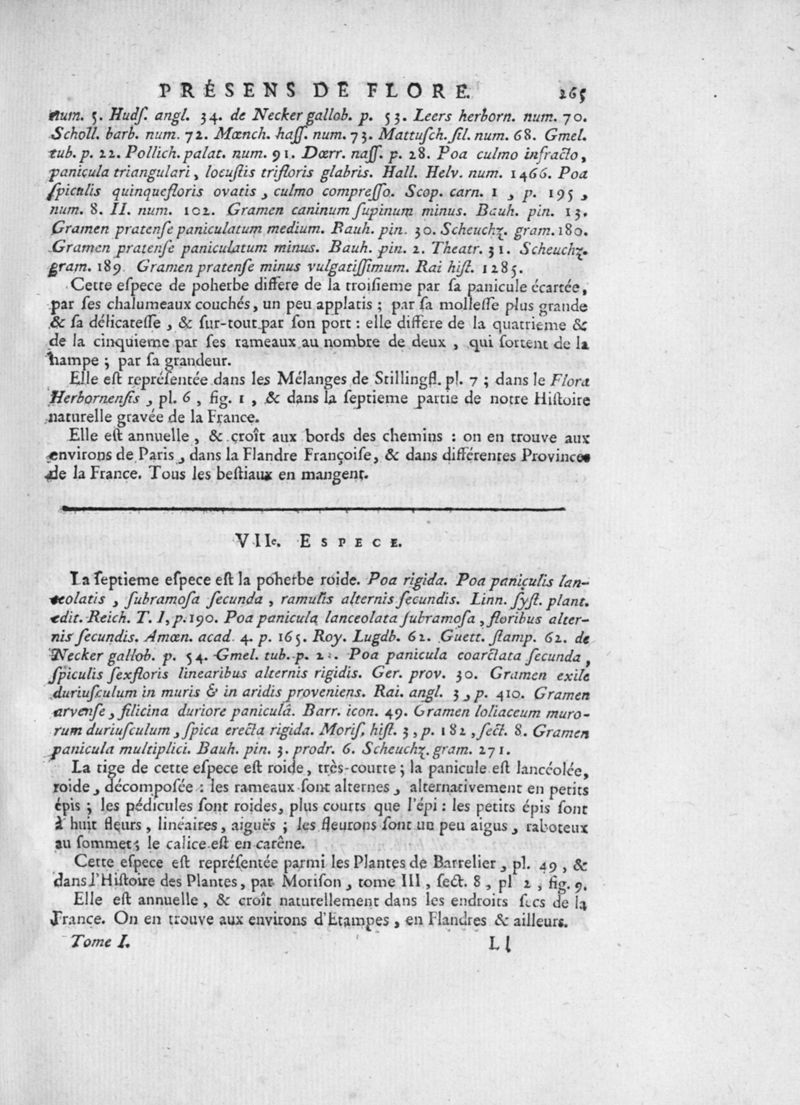 PRÉSENS DE FLORE. 265
num. 5. Hudſ. angl. 34. de Necker gallob. p. 53. Leers herborn. num. 70.
Scholl. barb. num. 72. Mœnch. haſſ. num. 73. Mattuſch. ſil. num. 68. Gmel.
tub. p. 22. Pollich. palat. num. 91. Dœrr. naſſ. p. 28. Poa culmo infracto,
panicula triangulari, locuſtis trifloris glabris. Hall. Helv. num. 1466. Poa
ſpiculis quinquefloris ovatis, culmo compreſſo. Scop. carn. 1, p. 195,
num. 8. II. num. 102. Gramen caninum ſupinum minus. Bauh. pin. 13.
Gramen pratenſe paniculatum medium. Bauh. pin. 30. Scheuchz. gram. 180.
Gramen pratenſe paniculatum minus. Bauh. pin. 2. Theatr. 31. Scheuchz.
gram. 189 Gramen pratenſe minus vulgatiſſimum. Rai hiſt. 1285.
Cette eſpece de poherbe differe de la troiſieme par ſa panicule écartée,
par ſes chalumeaux couchés, un peu applatis ; par ſa molleſſe plus grande
& ſa délicateſſe, & ſur-tout par ſon port : elle differe de la quatrieme &
de la cinquieme par ſes rameaux au nombre de deux, qui ſortent de la
hampe ; par ſa grandeur.
Elle eſt repréſentée dans les Mélanges de Stillingfl. pl. 7 ; dans le Flora
Herbornenſis, pl. 6, fig. 1, & dans la ſeptieme partie de notre Hiſtoire
naturelle gravée de la France.
Elle eſt annuelle, & croît aux bords des chemins : on en trouve aux
environs de Paris, dans la Flandre Françoiſe, & dans différentes Provinces
de la France. Tous les beſtiaux en mangent.
VIIe. ESPECE.
La ſeptieme eſpece eſt la poherbe roide. Poa rigida. Poa paniculis lan-
ceolatis, ſubramoſa ſecunda, ramulis alternis ſecundis. Linn. ſyſt. plant.
edit. Reich. T. I, p. 190. Poa panicula lanceolata ſubramoſa, floribus alter-
nis ſecundis. Amœn. acad 4. p. 165. Roy. Lugdb. 62. Guett. ſtamp. 62. de
Necker gallob. p. 54. Gmel. tub. p. Poa panicula coarctata ſecunda,
ſpiculis ſexfloris linearibus alternis rigidis. Ger. prov. 30. Gramen exile
duriuſculum in muris & in aridis proveniens. Rai. angl. 3, p. 410. Gramen
arvenſe, filicina duriore paniculâ. Barr. icon. 49. Gramen loliaceum muro-
rum duriuſculum, ſpica erecta rigida. Moriſ. hiſt. 3, p. 182, ſect. 8. Gramen
panicula multiplici. Bauh. pin. 3. prodr. 6. Scheuchz. gram. 271.
La tige de cette eſpece eſt roide, très-courte ; la panicule eſt lancéolée,
roide, décompoſée : les rameaux ſont alternes, alternativement en petits
épis ; les pédicules ſont roides, plus courts que l'épi : les petits épis ſont
à huit fleurs, linéaires, aiguës ; les fleurons ſont un peu aigus, raboteux
au ſommet ; le calice eſt en carêne.
Cette eſpece eſt repréſentée parmi les Plantes de Barrelier, pl. 49, &
dans l'Hiſtoire des Plantes, par Moriſon, tome III, ſect. 8, pl 2, fig. 9.
Elle eſt annuelle, & croît naturellement dans les endroits ſecs de la
France. On en trouve aux environs d'Etampes, en Flandres & ailleurs.
Tome I. Ll